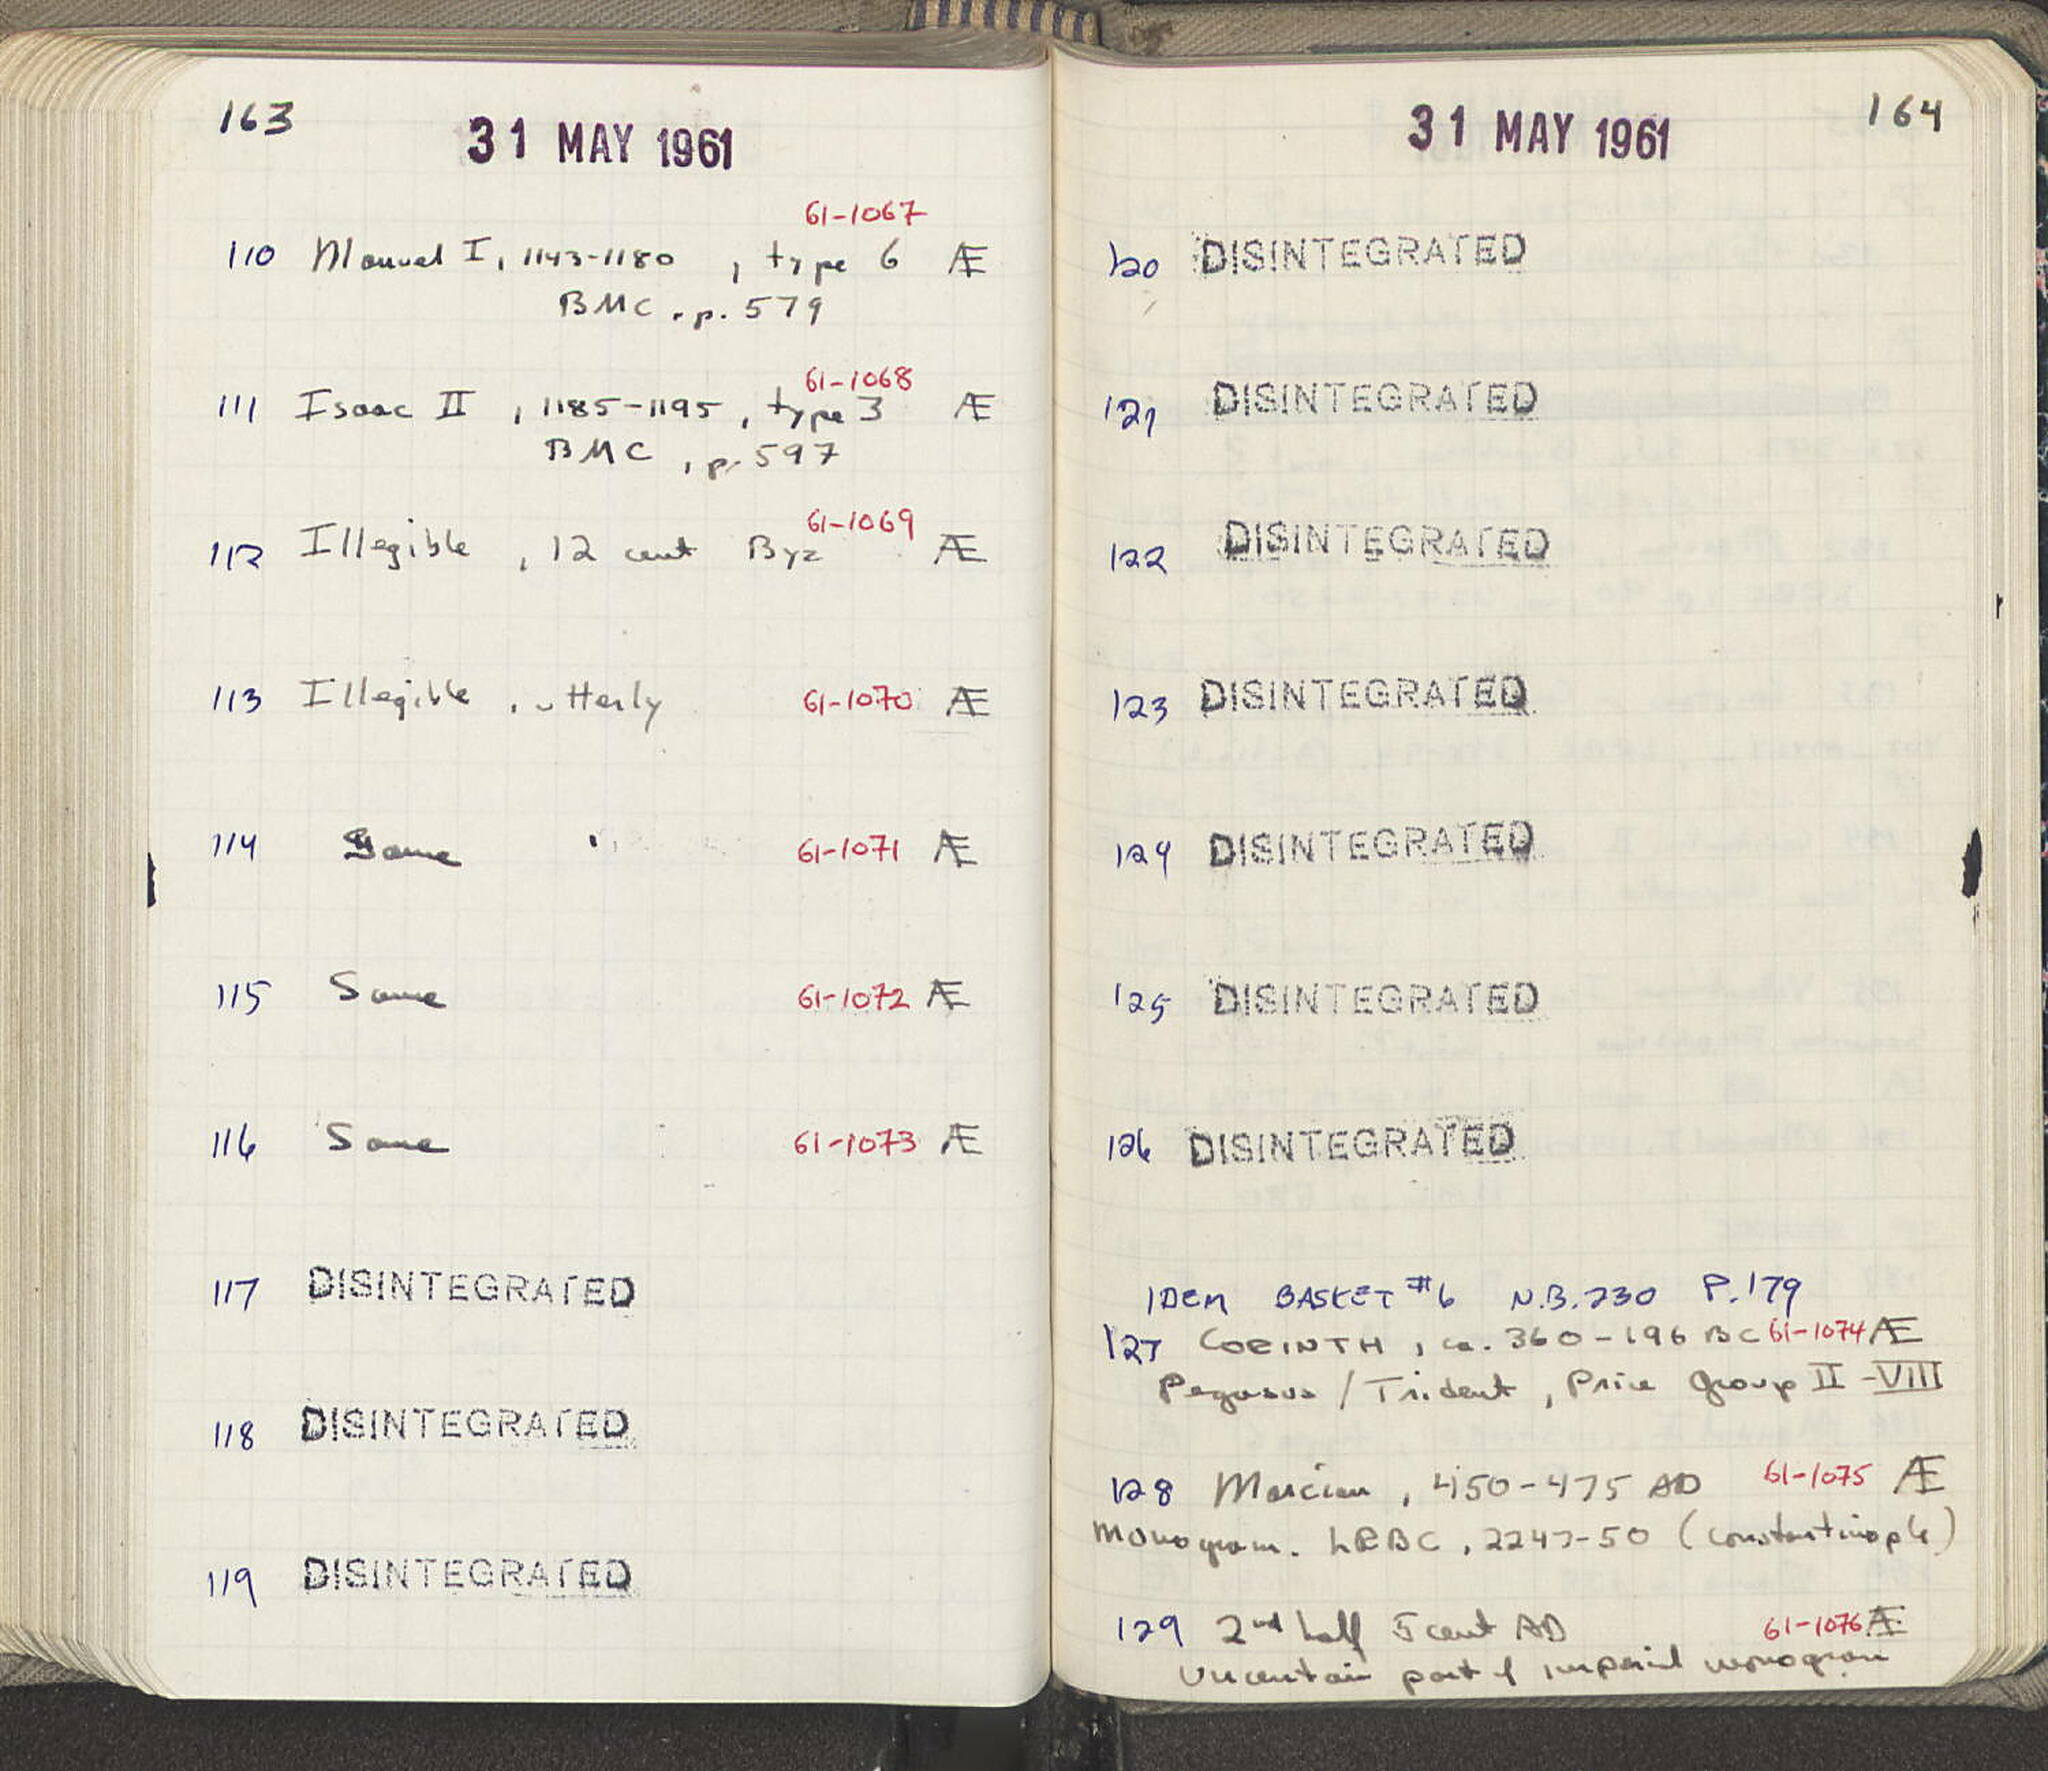 163
31 MAY 1961
61-1067
110 Manuel I, 1143-1180 , type 6 Æ
BMC, p. 579
61-1068
111 Isaac II , 1185-1195, type 3 Æ
BMC , p. 597
61-1069
112 Illegible , 12 cent Byz Æ
113 Illegible , utterly 61-1070 Æ
114 Same 61-1071 Æ
115 Same 61-1072 Æ
116 Same 61-1073 Æ
117 DISINTEGRATED
118 DISINTEGRATED
119 DISINTEGRATED
164
31 MAY 1961
120 DISINTEGRATED
121 DISINTEGRATED
122 DISINTEGRATED
123 DISINTEGRATED
124 DISINTEGRATED
125 DISINTEGRATED
126 DISINTEGRATED
IDEM BASKET #6 N.B. 230 P. 179
127 CORINTH , ca. 360-196 BC 61-1074 Æ
Pegasus / Trident , Price Group II-VIII
128 Marcian , 450-475 AD 61-1075 Æ
Monogram. LRBC , 2247-50 (Constantinople)
129 2nd half 5 cent AD 61-1076 Æ
Uncertain part of imperial monogram